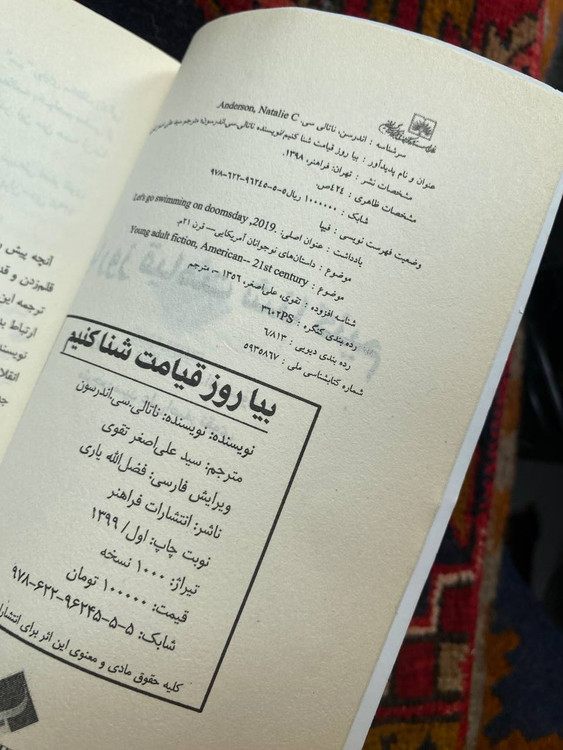 سرشناسه : اندرسن، ناتالی سی. Anderson, Natalie C.
عنوان و نام پدیدآور : بیا روز قیامت شنا کنیم/نویسنده ناتالی.سی.اندرسون؛ مترجم سید علی
مشخصات نشر : تهران: فراهنر، ۱۳۹۸.
مشخصات ظاهری : ۴۲۴ص.
شابک : ۱۰۰۰۰۰۰ ریال ۵-۵-۹۶۲۴۵-۶۲۲-۹۷۸
وضعیت فهرست نویسی : فیپا
یادداشت : عنوان اصلی: Let's go swimming on doomsday ,2019.
موضوع : داستان‌های نوجوانان آمریکایی-- قرن ۲۱م.
موضوع : Young adult fiction, American-- 21st century
شناسه افزوده : تقوی، علی‌اصغر، ۱۳۵۶ -، مترجم
رده بندی کنگره : PS۳۶۰۲
رده بندی دیویی : ۸۱۳/۶
شماره کتابشناسی ملی : ۵۹۳۵۸۶۷
بیا روز قیامت شنا کنیم
نویسنده: نویسنده: ناتالی.سی.اندرسون
مترجم: سید علی‌اصغر تقوی
ویرایش فارسی: فضل‌الله یاری
ناشر: انتشارات فراهنر
نوبت چاپ: اول/ ۱۳۹۹
تیراژ: ۱۰۰۰ نسخه
قیمت: ۱۰۰۰۰۰ تومان
شابک: ۵-۵-۹۶۲۴۵-۶۲۲-۹۷۸
کلیه حقوق مادی و معنوی این اثر برای
آنچه پیش
قلم‌زدن و
ترجمه این
ارتباط